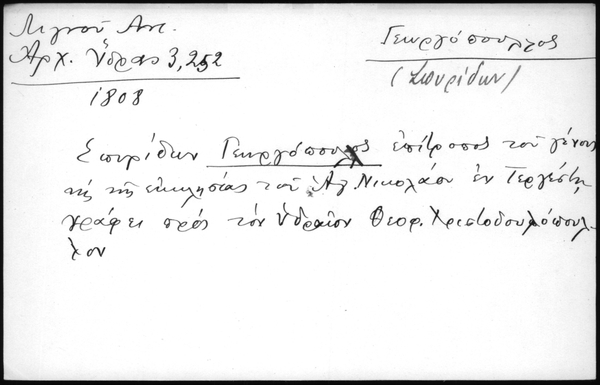 Λιγνού Αντ.
Αρχ. Ύδρας 3,252
1808
Γεωργόπουλος
(Σπυρίδων)
Σπυρίδων Γεωργόπουλος επίτροπος του γένους
και της εκκλησίας του Αγ. Νικολάου εν Τεργέστη,
γράφει προς τον Υδραίον Θεοφ. Χριστοδουλόπουλ-
λον